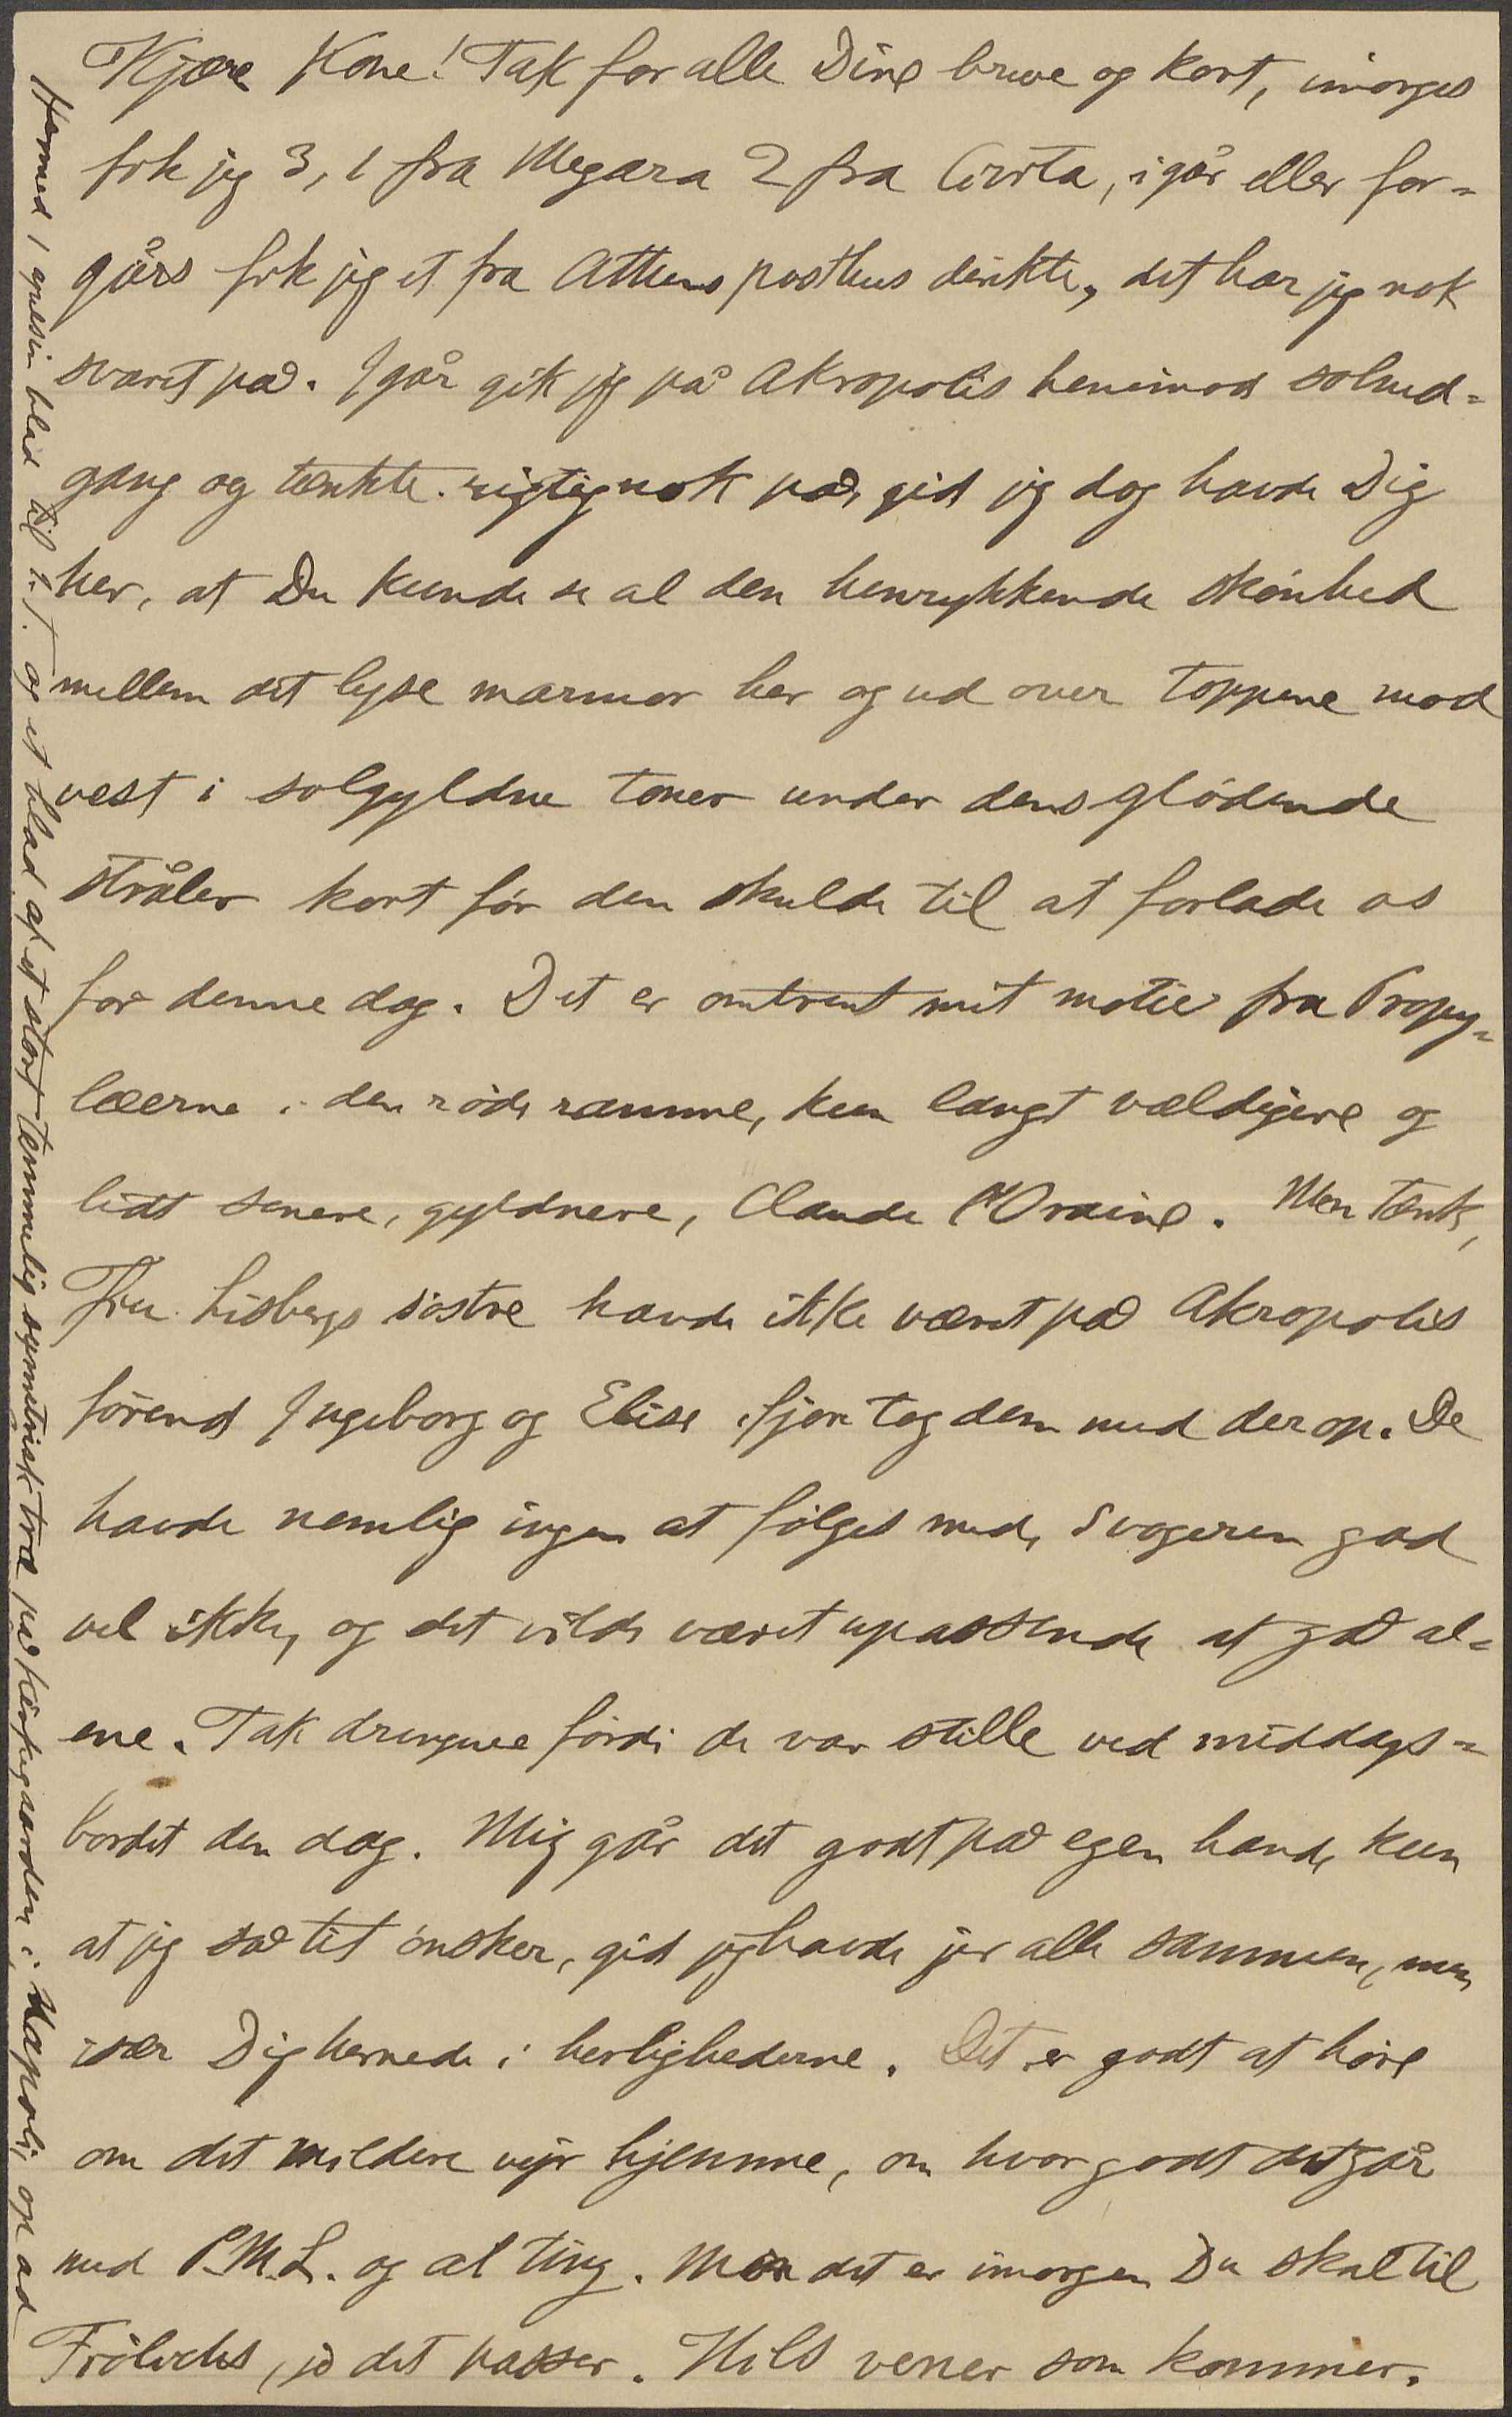 Kjære Kone! Tak for alle Dine breve og kort, imorges
fik jeg 3, 1 fra Megara 2 fra Civita, igår eller for=
gårs fik jeg et fra Athens posthus dirikte, det har jeg nok
svaret på. Igår gik jeg på Akropolis henimod solned=
gang og tænkte rigtignok på, gid jeg dog havde Dig
her, at Du kunde se al den henrykkende skönhed
mellem det lyse marmor her og ud over toppene mod
vest i solgyldne toner under dens glödende
stråler kort för den skulde til at forlade os
for denne dag. Det er omtrent mit motiv fra Propy=
læerne i den röde ramme, kun langt vældigere og
lidt senere, gyldnere, Claude l'Oraine. Men tænk,
Fru Lisbergs söstre havde ikke været på Akropolis
förend Ingeborg og Elise ifjor tog dem med derop. De
havde nemlig ingen at fölges med, Svogeren gad
vel ikke, og det vilde været upassende at gå al=
ene. Tak drengene fördi de var stille ved middags=
bordet den dag. Mig går det godt på egen hånd, kun
at jeg så tit önsker, gid jeg havde jer alle sammen, men
især Dig hernede i herlighederne. Det er godt at höre
om det mildere vejr hjemme, om hvor godt det går
med P.M.L. og al ting. Mon det er imorgen Du skal til
Frölichs, jo det passer. Hils venner som kommer.
Hermed 1 apelsin blad til h.T. og et blad af et stort temmelig symetrisk træ på kirkegaarden i Napoli, op ad